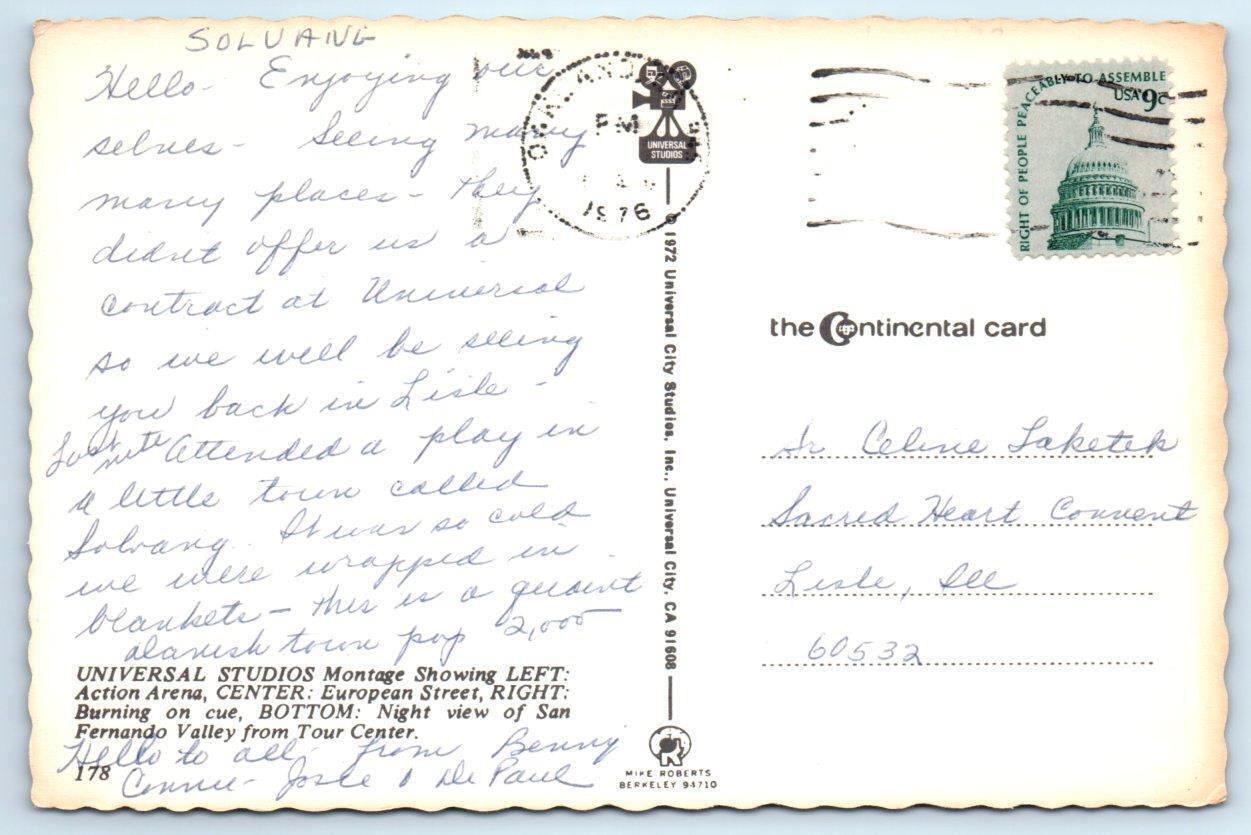 SOLVANG
Hello - Enjoying our
selves - Seeing many
many places - they
didnt offer us a
contract at Universal
so we will be seeing
you back in Lisle -
Last nite Attended a play in
a little town called
Solvang. It was so cold
we were wrapped in
blankets - this is a quaint
danish town pop 2,000
UNIVERSAL STUDIOS Montage Showing LEFT:
Action Arena, CENTER: European Street, RIGHT:
Burning on cue, BOTTOM: Night view of San
Fernando Valley from Tour Center.
Hello to all from Benny
Connie - Josie & De Paul
178
PM
1976
UNIVERSAL
STUDIOS
© 1972 Universal City Studios, Inc., Universal City, CA 91608
MIKE ROBERTS
BERKELEY 94710
RIGHT OF PEOPLE PEACEABLY TO ASSEMBLE
USA 9c
the Continental card
Sr Celine
Sacred Heart Convent
Lisle, Ill
60532